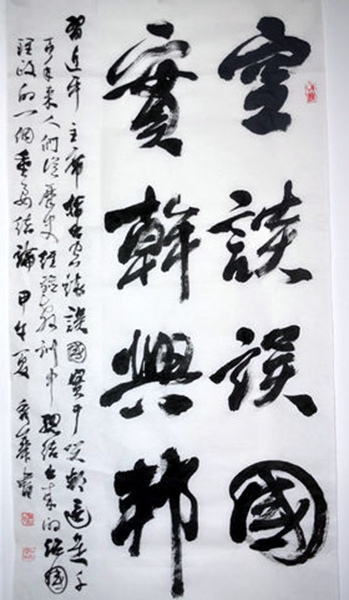 空談誤國
實幹興邦
習近平主席指出空談誤國實干興邦這是千
百年來人們從歷史經驗教訓中總結出來的治國
理政的一個重要結論 甲午夏